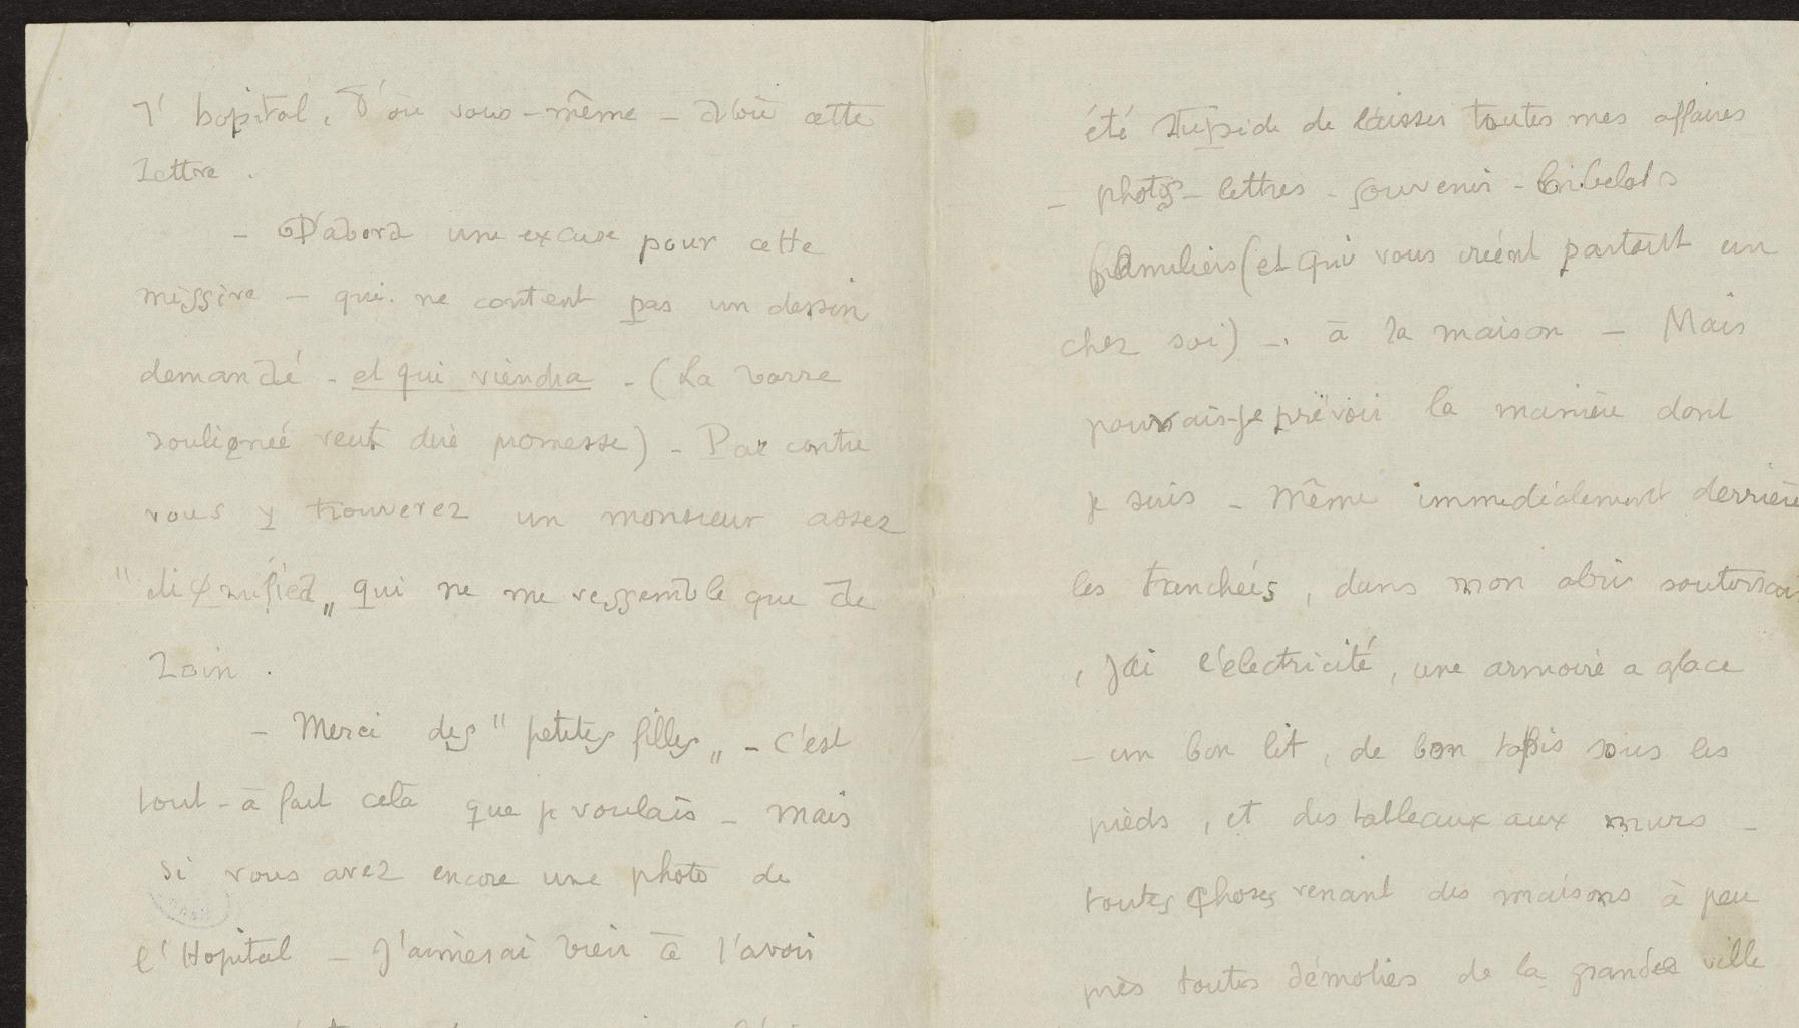 l'hopital, d'où vous-même - avoir cette
lettre.
- D'abord une excuse pour cette
missive - qui ne contient pas un dessin
demandé - et qui viendra - (La barre
soulignée veut dire promesse) - Par contre
vous y trouverez un monsieur assez
"dignified" qui ne me ressemble que de
loin.
- Merci des "petites filles" - C'est
tout-à fait cela que je voulais - Mais
si vous avez encore une photo de
l'Hopital - J'aimerai bien à l'avoir
été stupide de laisser toutes mes affaires
- photos - lettres - souvenir - bibelots
familiers (et qui vous créent partout un
chez soi) - à la maison - Mais
pouvais-je prévoir la manière dont
je suis - Même immediatement derrière
les tranchées, dans mon abri
, J'ai l'électricité, une armoire a glace
- un bon lit, de bon tapis sous les
pieds, et des tableaux aux murs -
toutes choses venant des maisons à peu
près toutes démolies de la grande ville